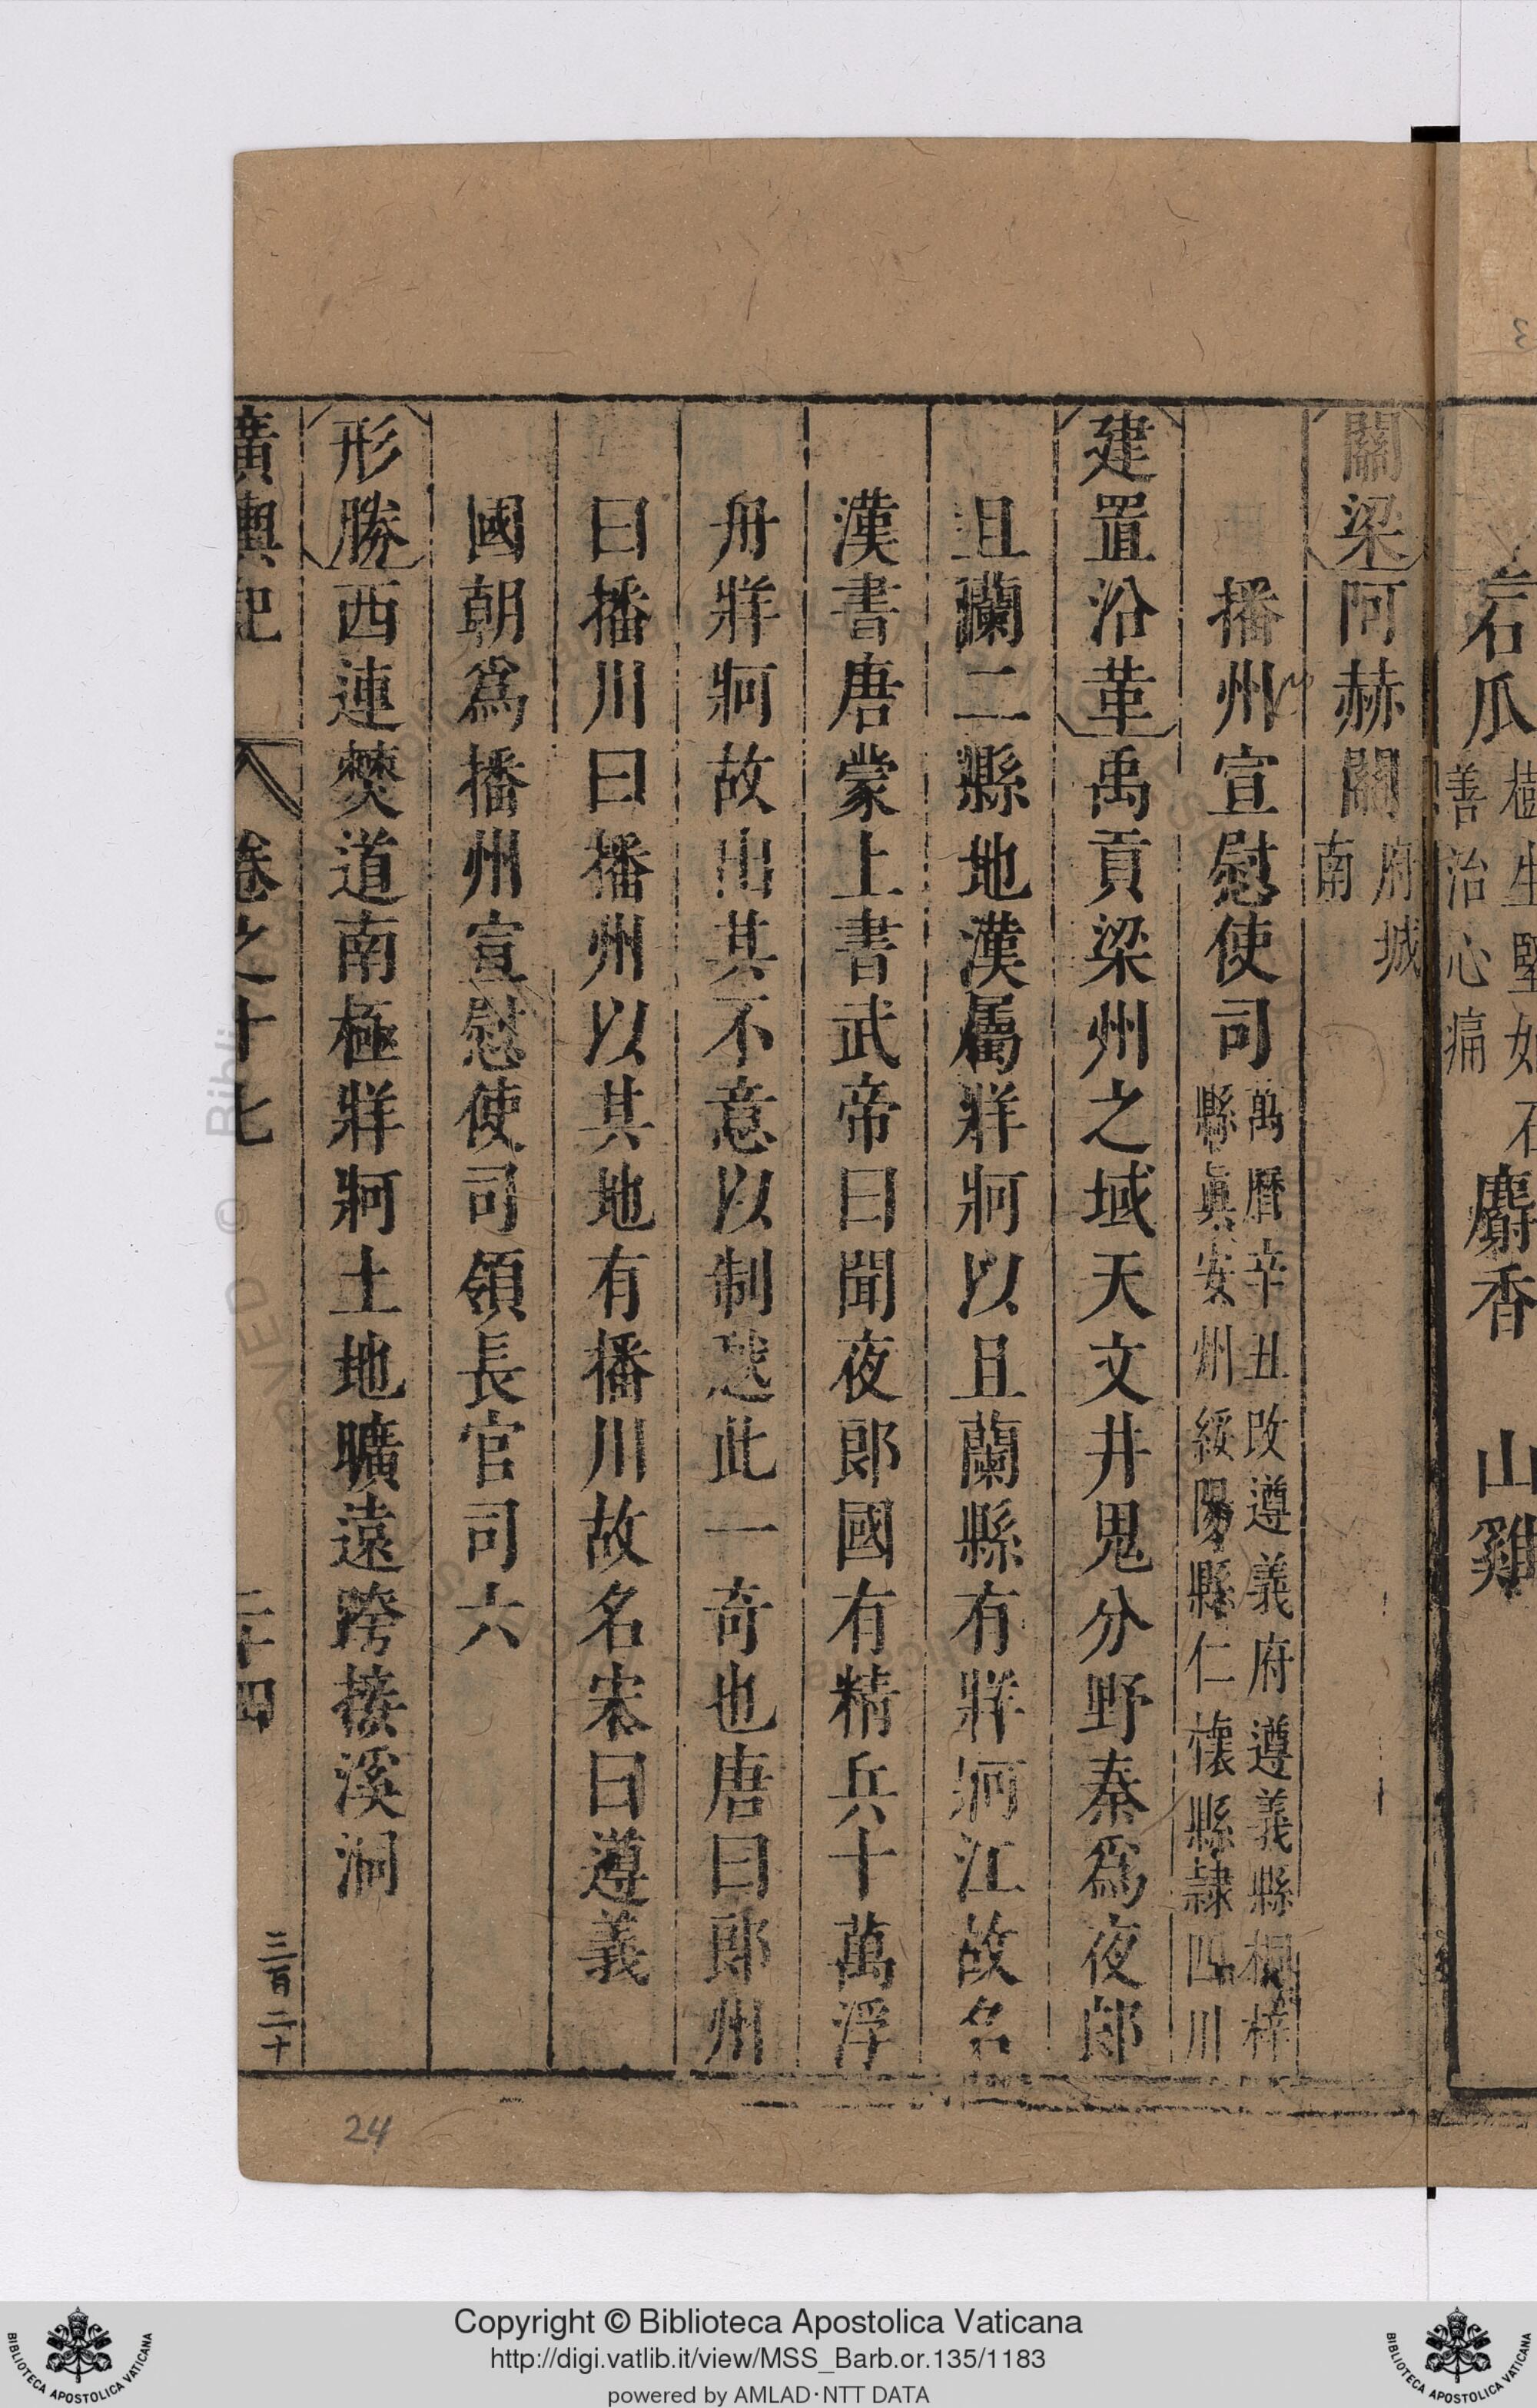 岩瓜 樹生堅如石
善治心痛 麝香 山雞
關梁阿赫關 府城
南
播州宣慰使司 萬曆辛丑改遵義府遵義縣桐梓
縣眞安州綏陽縣仁懷縣隷四川
建置沿革禹貢梁州之域天文井鬼分野秦爲夜郎
且蘭二縣地漢屬牂牁以且蘭縣有牂牁江故名
漢書唐蒙上書武帝曰聞夜郎國有精兵十萬浮
舟牂牁故出其不意以制越此一奇也唐曰郎州
曰播川曰播州以其地有播川故名宋曰遵義
國朝爲播州宣慰使司領長官司六
形勝西連僰道南極牂牁土地曠遠跨接溪洞
廣輿記 卷之十七 二十四
三百二十
24
3
Copyright © Biblioteca Apostolica Vaticana
http://digi.vatlib.it/view/MSS_Barb.or.135/1183
powered by AMLAD·NTT DATA
BIBLIOTECA APOSTOLICA VATICANA
BIBLIOTECA APOSTOLICA VATICANA